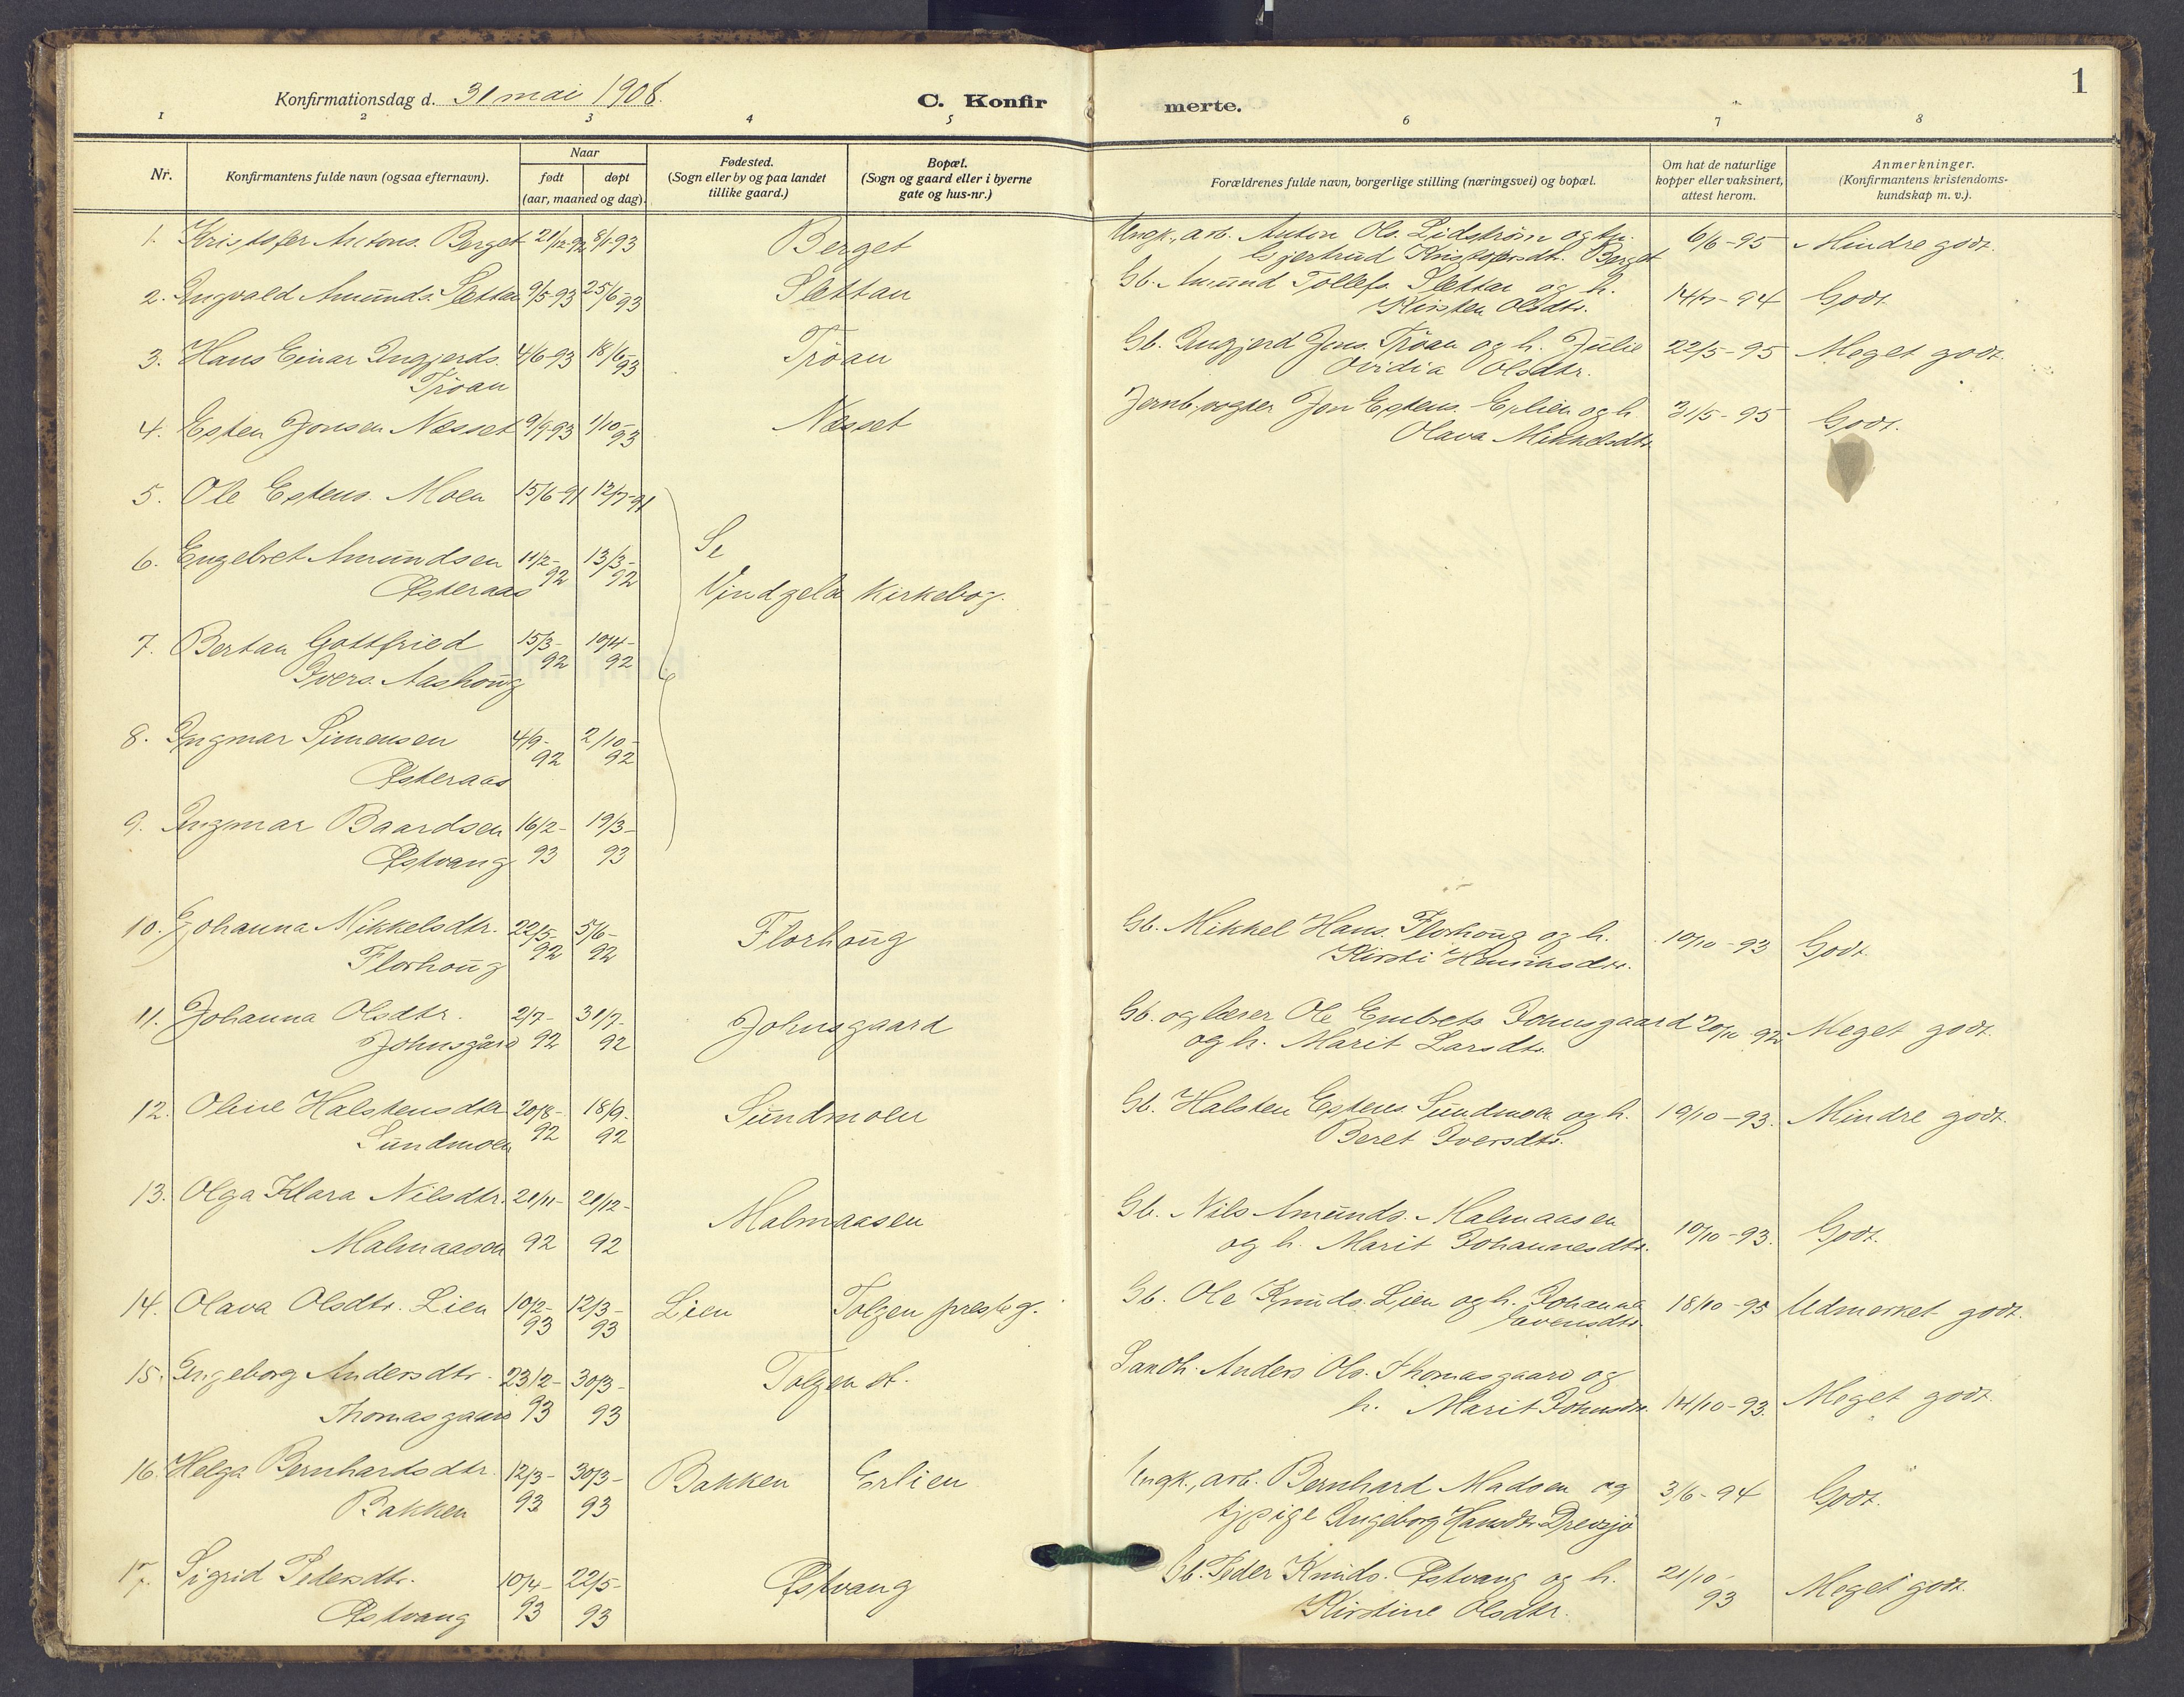 Konfirmationsdag d. 31 mai 1908.
C. Konfir
merte.
1
1 2 3 4 5 6 7 8
Nr.
Konfirmantens fulde navn (ogsaa efternavn).
Naar
født døpt
(aar, maaned og dag).
Fødested.
(Sogn eller by og paa landet
tillike gaard.)
Bopæl.
(Sogn og gaard eller i byerne
gate og hus-nr.)
Forældrenes fulde navn, borgerlige stilling (næringsvei) og bopæl.
Om hat de naturlige
kopper eller vaksinert,
attest herom.
Anmerkninger.
(Konfirmantens kristendoms-
kundskap m. v.).
1. Kristofer Antons. Berget 21/12-92 8/1-93 Berget Ungk., arb. Anton Ols. Lidstrøm og 6/6-95 Mindre godt.
Gjertrud Kristofersdtr. Berget
2. Ingvald Amunds. Slettan 9/5-93 25/6-93 Slettan Gb. Amund Tollefs. Slettan og h. 14/7-94 Godt.
Kirsten Olsdtr.
3. Hans Einar Ingjerds. 4/6-93 18/6-93 Trøan Gb. Ingjerd Jons. Trøan og h. Julie 22/5-95 Meget godt.
Trøan Ovidia Olsdtr.
4. Esten Jonsen Næsset 9/9-93 1/10-93 Næsset Jernb.vogter Jon Estens. Erlien og h. 31/5-95 Godt.
Olava Mikkelsdtr.
5. Ole Estens. Moen 15/6-91 12/7-91
6. Engebret Amundsen 11/2-92 13/3-92 Se
Østeraas Vindgelen Kirkebog.
7. Bertan Gottfried 15/3-92 10/4-92
Ivers. Aashoug
8. Ingmar Simensen 4/9-92 2/10-92
Østeraas
9. Ingmar Baardsen 16/2-93 19/3-93
Østvang
10. Johanna Mikkelsdtr. 22/5-92 5/6-92 Florhoug Gb. Mikkel Hans. Florhoug og h. 10/10-93 Godt.
Florhoug Kirsti Henriksdtr.
11. Johanna Olsdtr. 2/7-92 31/7-92 Johnsgaard Gb. og lærer Ole Embrets. Johnsgaard Meget godt.
Johnsgård og h. Marit Larsdtr.
12. Oline Halstensdtr 20/8-92 18/9-92 Sundmoen Gb. Halsten Estens. Sundmoen og h. 19/10-93. Mindre godt.
Sundmoen Beret Iversdtr.
13. Olga Klara Nilsdtr. 21/11-92 21/12-92 Malmaasen Gb. Nils Amunds. Malmaasen 10/10-93. Godt.
Malmaasen og h. Marit Johannesdtr.
14. Olava Olsdtr. Lien 10/2-93 12/3-93 Lien Tolgen presteg. Gb. Ole Knuds. Lien og h. Johanna 18/10-95 Udmerket godt.
15. Ingeborg Andersdtr. 23/2-93 30/3-93 Tolgen st. Landh. Anders Ols. Thomasgaard og 14/10-93. Meget godt.
Thomasgaard h. Marit Johnsdtr.
16. Helga Bernhardsdtr. 12/3-93 30/3-93 Bakken Erlien Ungk., arb. Bernhard Madsen og 3/6-94 Godt.
Bakken tj.pige Ingeborg Hansdtr. Drevsjø
17. Sigrid Pedersdtr. 10/4-93 22/5-93 Østvang Gb. Peder Knuds. Østvang og h. 21/10-93 Meget godt.
Østvang Kirstine Olsdtr.